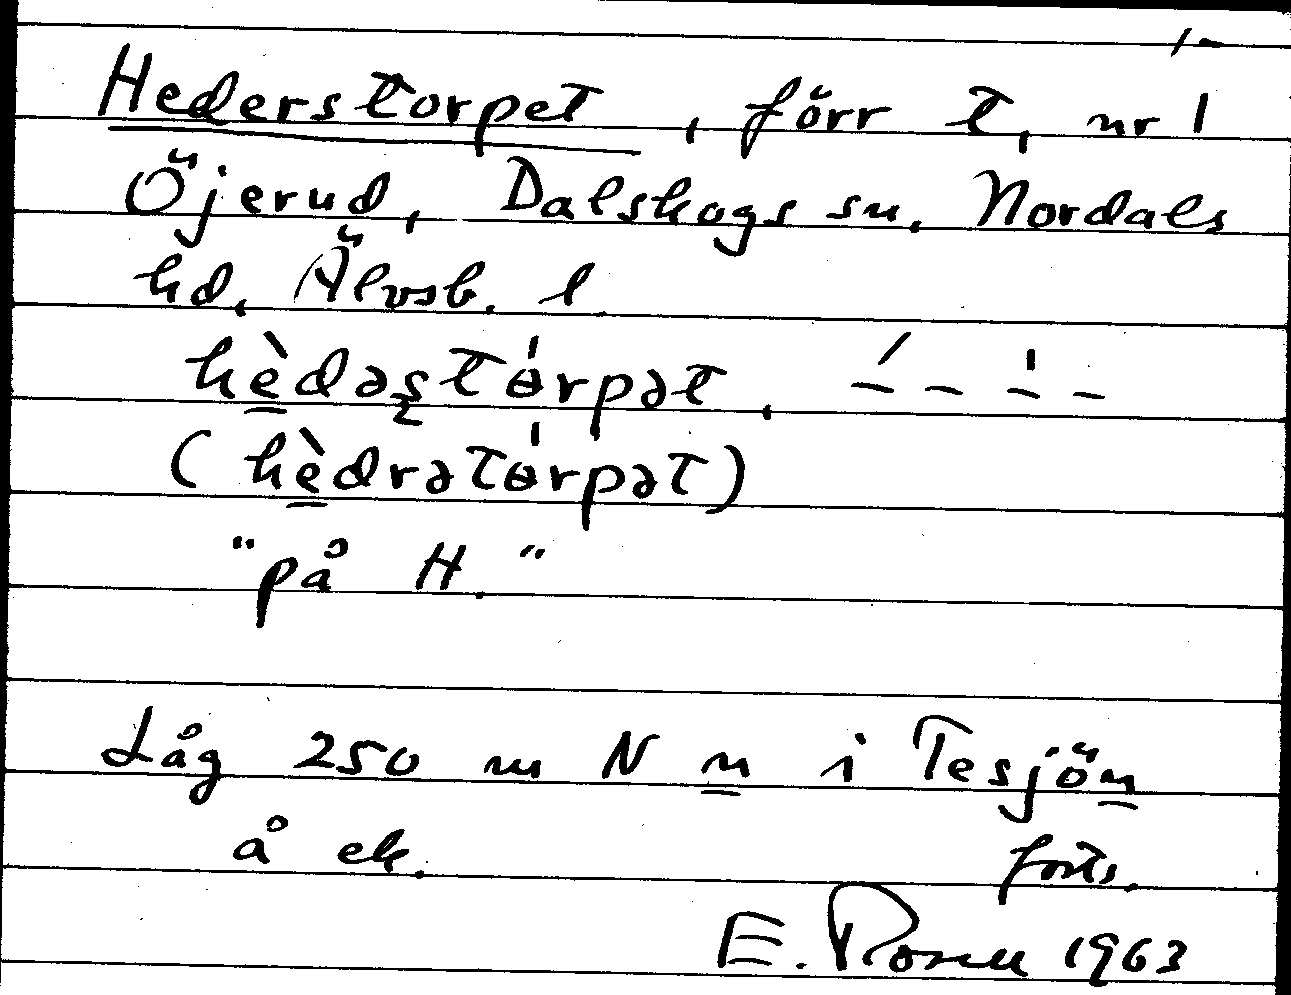 1-
Hederstorpet, förr t, nr 1
Öjerud, Dalskogs sn, Nordals
hd, Älvsb. l
hèdəst\u0275́rpət,
(hèdrət\u0275́rpət)
"på H."
Låg 250 m N n i Tesjön
å ek. forts.
E. Rosell 1963